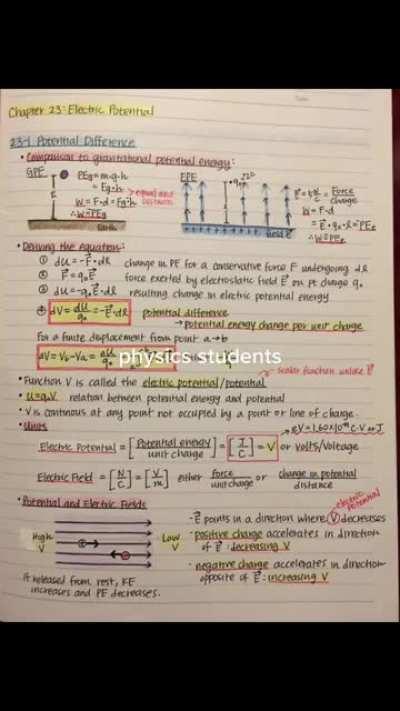 Chapter 23: Electric Potential
23-1 Potential Difference
• Comparison to gravitational potential energy:
GPE
PEg = m·g·h
= Fg·h
W = F·d = Fg·h
∴ W = PEg
Earth
→ equal and
EPE
field E
Force
charge
W = F·d
= E·q₀·l = PEE
∴ W = PEE
• Deriving the equation:
① dU = -F·dl change in PE for a conservative force F undergoing dl
② F = q₀E force exerted by electrostatic field E on pt charge q₀
③ dU = -q₀E·dl resulting change in electric potential energy
④ dV = dU/q₀ = -E·dl potential difference
→ potential energy change per unit charge
For a finite displacement from point a→b
dV = Vb - Va = ΔU/q₀
physics students
→ scalar function unlike E
• Function V is called the electric potential/potential
• U = q₀V relation between potential energy and potential
• V is continous at any point not occupied by a point or line of charge.
• Units
eV = 1.60×10⁻¹⁹ C·V or J
Electric Potential = [Potential energy / unit charge] = [J/C] = V or Volts/Voltage
Electric Field = [N/C] = [V/m] either force / unit charge or change in potential / distance
• Potential and Electric Fields
electric potential
High V
Low V
- E points in a direction where V decreases
- positive charge accelerates in direction
of E: decreasing V
- negative charge accelerates in direction
opposite of E: increasing V
If released from rest, KE
increases and PE decreases.